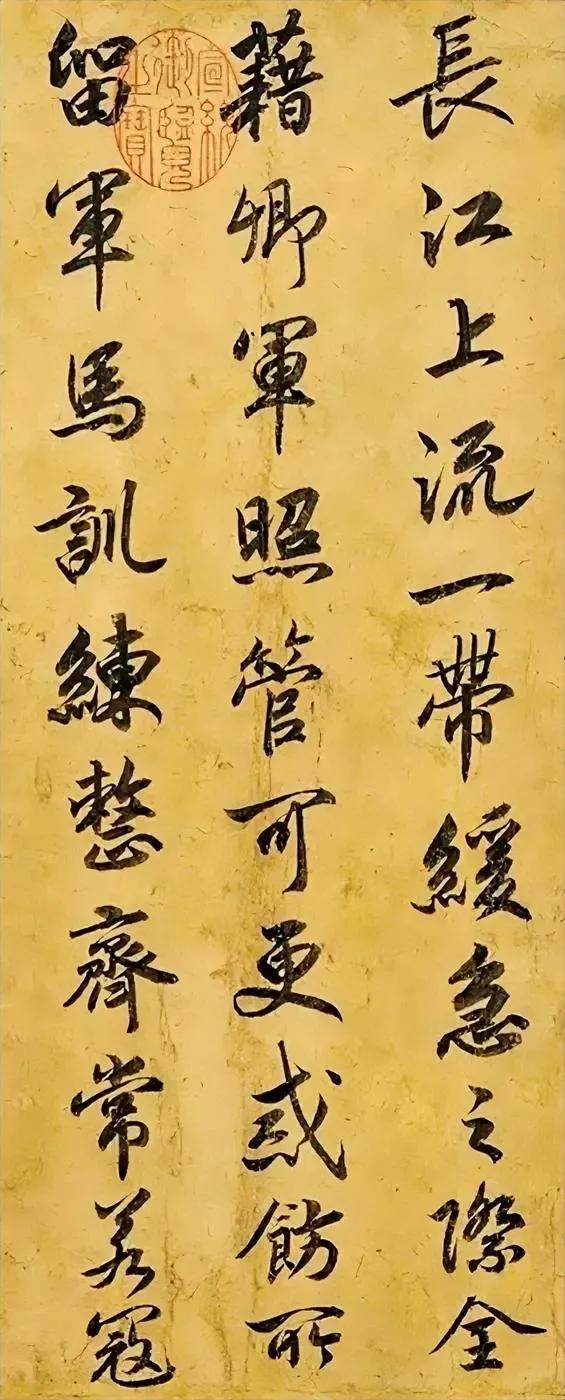 長江上流一帶緩急之際全
藉卿軍照管可更戒飭所
留軍馬訓練整齊常若寇
宣統
御覽
之寶